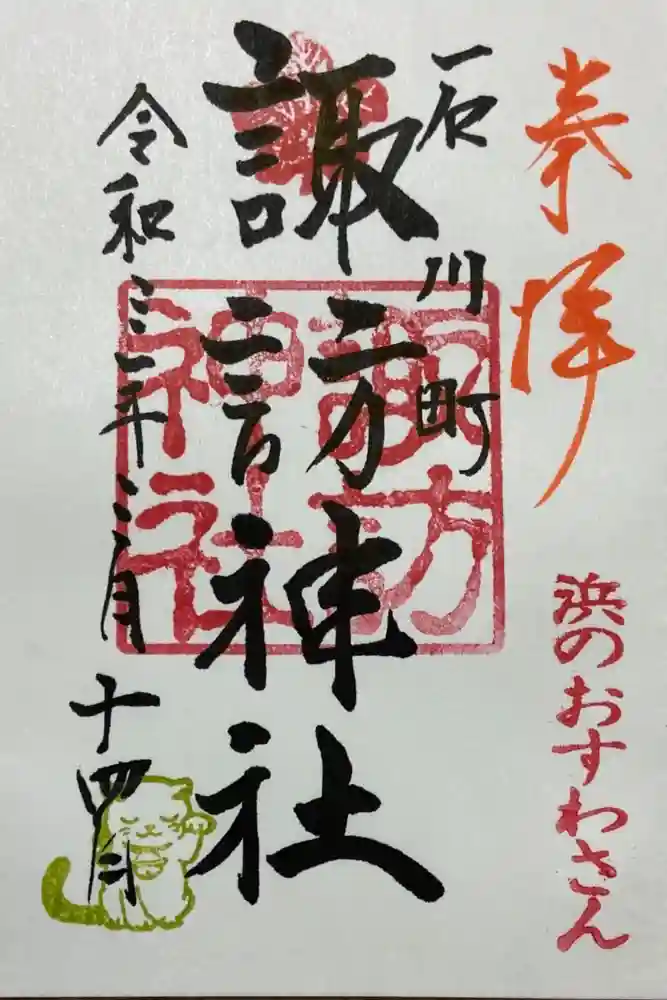 奉拝
浜のおすわさん
石川町
諏訪神社
諏訪神社
令和三年二月十四日